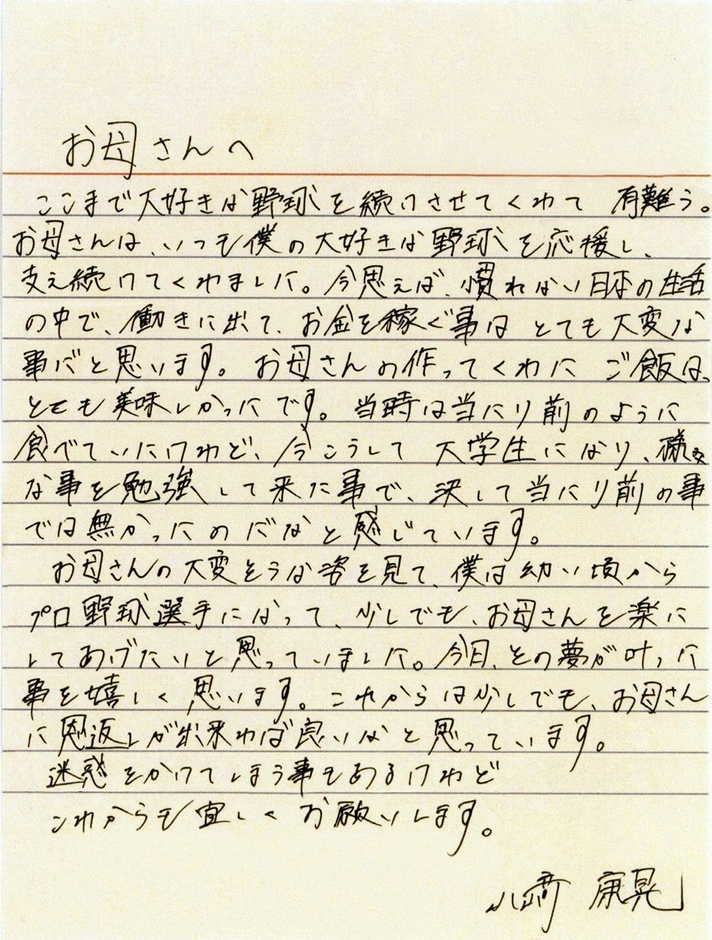 お母さんへ
ここまで大好きな野球を続けさせてくれて 有難う。
お母さんは、いつも僕の大好きな野球を応援し、
支え続けてくれました。今思えば、慣れない日本の生活
の中で、働きに出て、お金を稼ぐ事は とても大変な
事だと思います。お母さんの作ってくれた ご飯は、
とても美味しかったです。当時は当たり前のように
食べていたけれど、今こうして 大学生になり、様々
な事を勉強して来た事で、決して当たり前の事
では無かったのだなと感じています。
お母さんの大変そうな姿を見て、僕は幼い頃から
プロ野球選手になって、少しでも、お母さんを楽に
してあげたいと思っていました。今日、その夢が叶った
事を嬉しく思います。これからは少しでも、お母さん
に恩返しが出来れば良いなと思っています。
迷惑をかけてしまう事もあるけれど
これからも宜しくお願いします。
山﨑 康晃